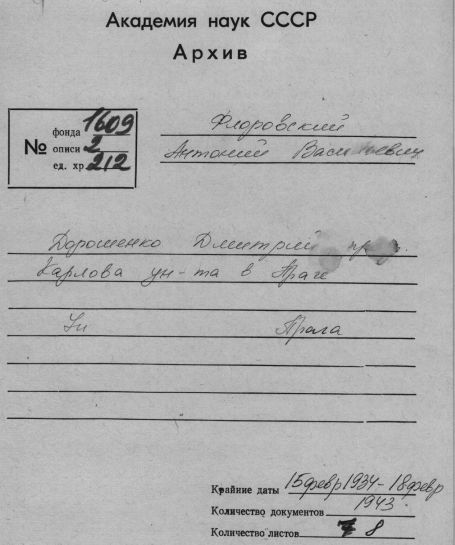 Академия наук СССР
Архив
№ фонда 1609
описи 2
ед. хр. 212
Флоровский
Антоний Васильевич
Дорошенко Дмитрий
Карлова ун-та в Праге
Прага
Крайние даты 15 февр 1934 - 18 февр
1943.
Количество документов
Количество листов 8